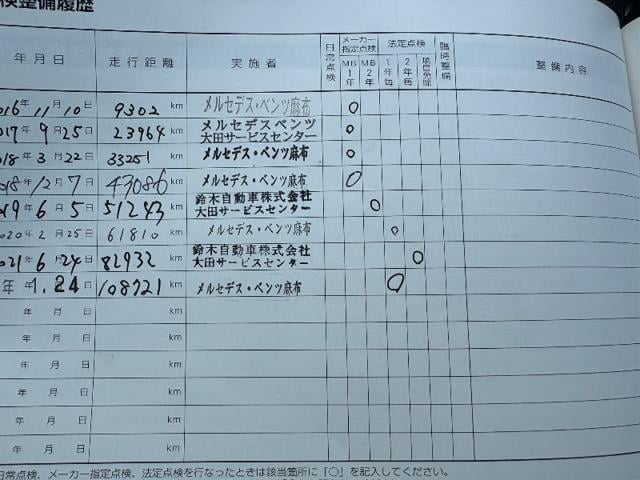 検整備履歴
年月日 走行距離 実施者 日常点検 メーカー指定点検 MB1年 MB2年 法定点検 1年毎 2年毎 臨時整備 整備内容
016年11月10日 9302 km メルセデス・ベンツ麻布 ○
017年9月25日 23964 km メルセデスベンツ
大田サービスセンター ○
018年3月22日 33251 km メルセデス・ベンツ麻布 ○
018年12月7日 43086 km メルセデス・ベンツ麻布 ○
019年6月5日 51243 km 鈴木自動車株式会社
大田サービスセンター ○
020年2月25日 61810 km メルセデス・ベンツ麻布 ○
021年6月24日 82932 km 鈴木自動車株式会社
大田サービスセンター ○
年1.24日 108721 km メルセデス・ベンツ麻布 ○
年 月 日 km
年 月 日 km
年 月 日 km
年 月 日 km
年 月 日 km
日常点検、メーカー指定点検、法定点検を行なったときは該当箇所に「○」を記入してください。